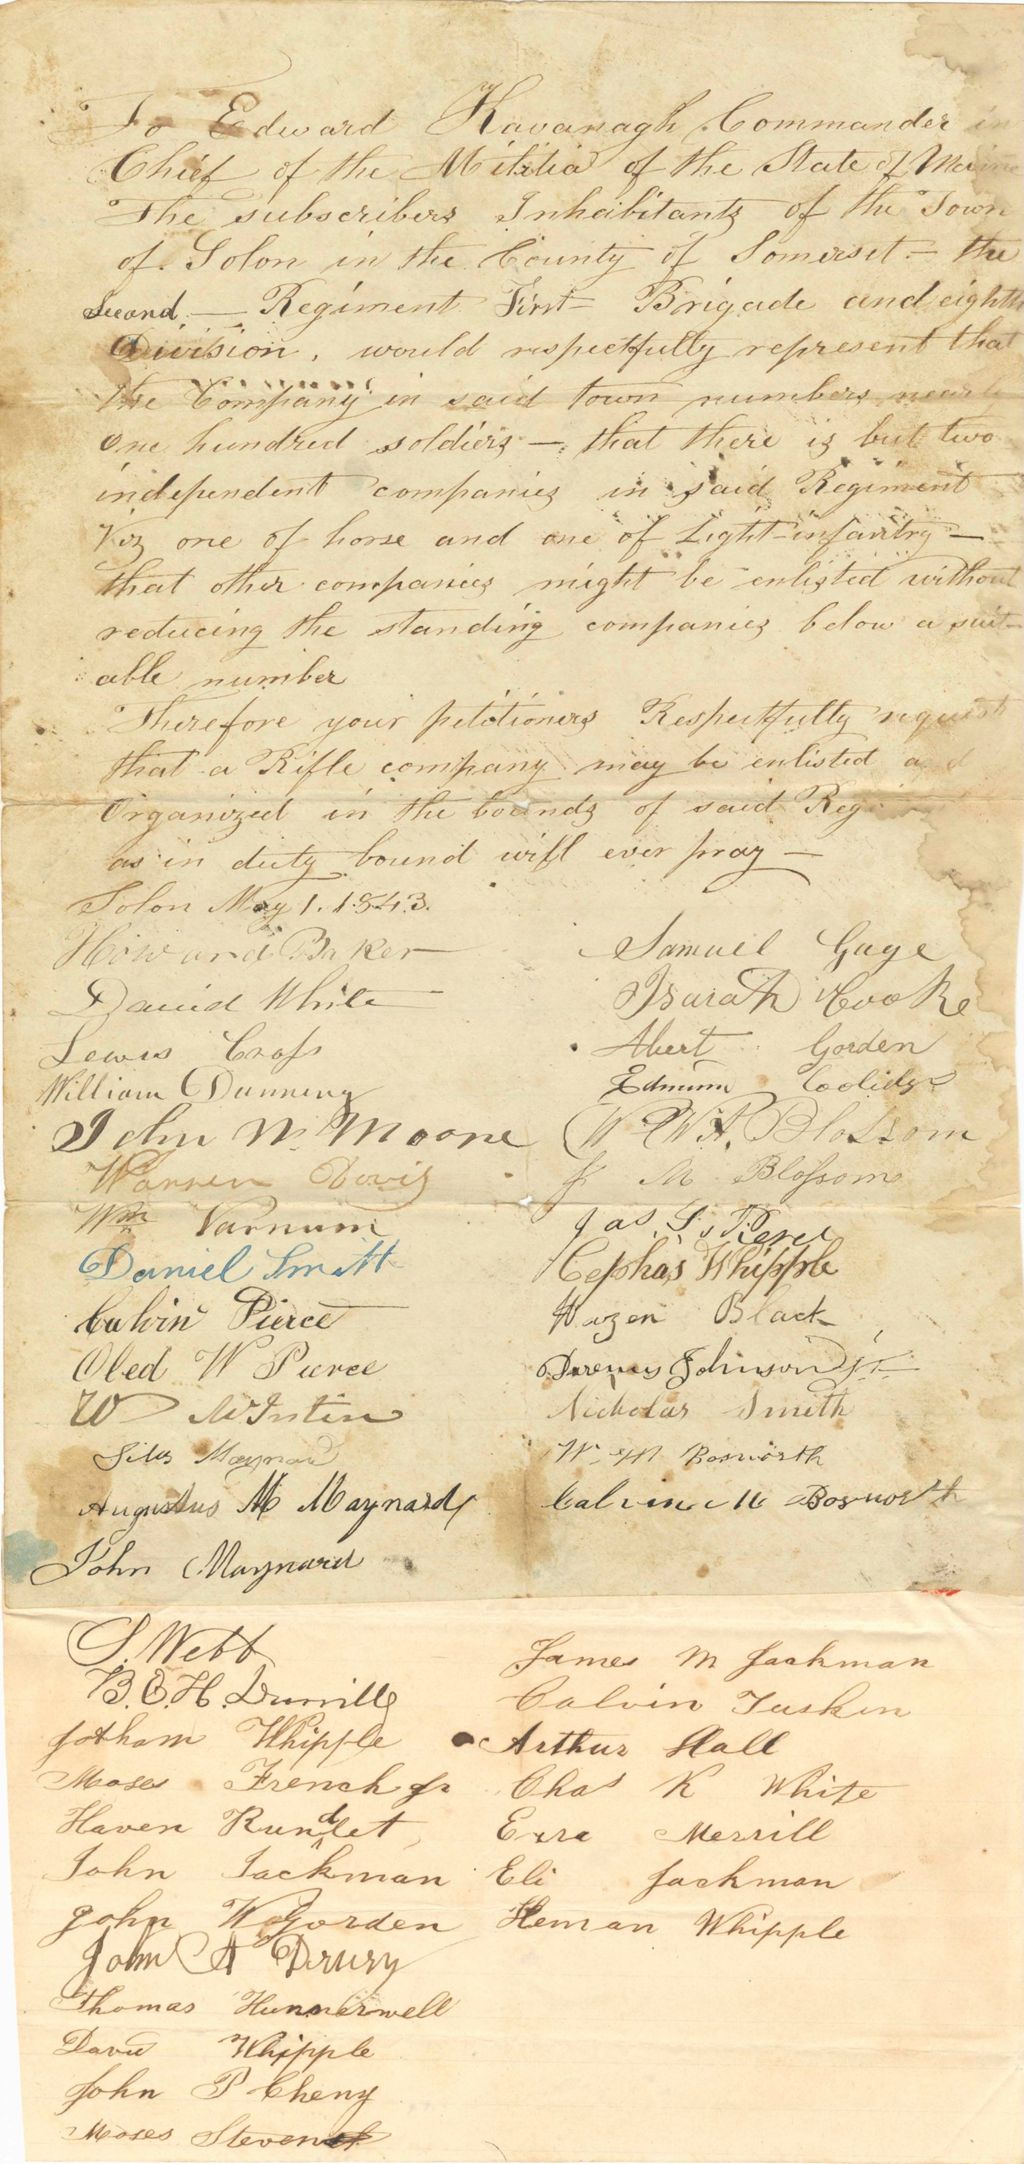 To Edward Kavanagh Commander in
Chief of the Militia of the State of Maine
The subscribers Inhabitants of the Town
of Solon in the County of Somerset - the
Second - Regiment First Brigade and eighth
Division, would respectfully represent that
the Company in said town numbers nearly
one hundred soldiers - that there is but two
independent companies in said Regiment
Viz one of horse and one of Light-infantry -
that other companies might be enlisted without
reducing the standing companies below a suit-
able number
Therefore your petitioners Respectfully request
that a Rifle company may be enlisted and
Organized in the bounds of said Reg
as in duty bound will ever pray -
Solon May 1. 1843.
Howard Baker
David White
Lewis Cross
William Dunning
John W. Moore
Warren Davis
Wm Varnum
Daniel Smith
Calvin Pierce
Obed W Pierce
W McIntin
Silas Maynard
Augustus M Maynard
John Maynard
Samuel Gage
Cooke
Albert Gorden
Coolidge
Blossom
J M Blossom
Jas S.
Cephas Whipple
Hazen Black
Johnson Jr
Nicholas Smith
Wm Bosworth
Calvin M Bosworth
S. Webb
B. H.
Jotham Whipple
Moses French Jr
Haven Rundlet
John Jackman
John W Gorden
John A Drury
Thomas Hunnerwell
David Whipple
John P Cheny
Moses Stevens
James M Jackman
Calvin
Arthur Hall
Chas K White
Ezra Merrill
Eli Jackman
Heman Whipple